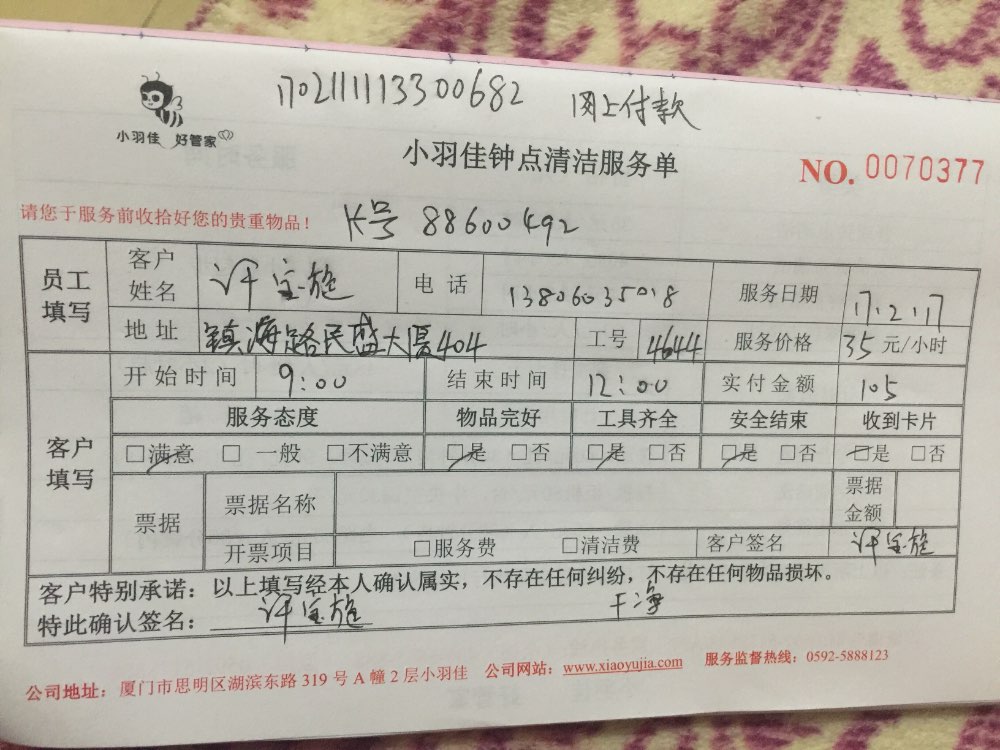 170211113300682 网上付款
小羽佳 好管家
小羽佳钟点清洁服务单
NO. 0070377
请您于服务前收拾好您的贵重物品！
卡号 88600492
员工填写 客户姓名 许宝施 电话 13806035018 服务日期 17.2.17
地址 镇海路民盛大厦404 工号 4644 服务价格 35 元/小时
客户填写 开始时间 9:00 结束时间 12:00 实付金额 105
服务态度 物品完好 工具齐全 安全结束 收到卡片
□满意 □一般 □不满意 □是 □否 □是 □否 □是 □否 □是 □否
票据 票据名称 票据金额
开票项目 □服务费 □清洁费 客户签名 许宝施
客户特别承诺：以上填写经本人确认属实，不存在任何纠纷，不存在任何物品损坏。
特此确认签名： 许宝施 王海
公司地址：厦门市思明区湖滨东路 319 号 A 幢 2 层小羽佳 公司网站：www.xiaoyujia.com 服务监督热线：0592-5888123